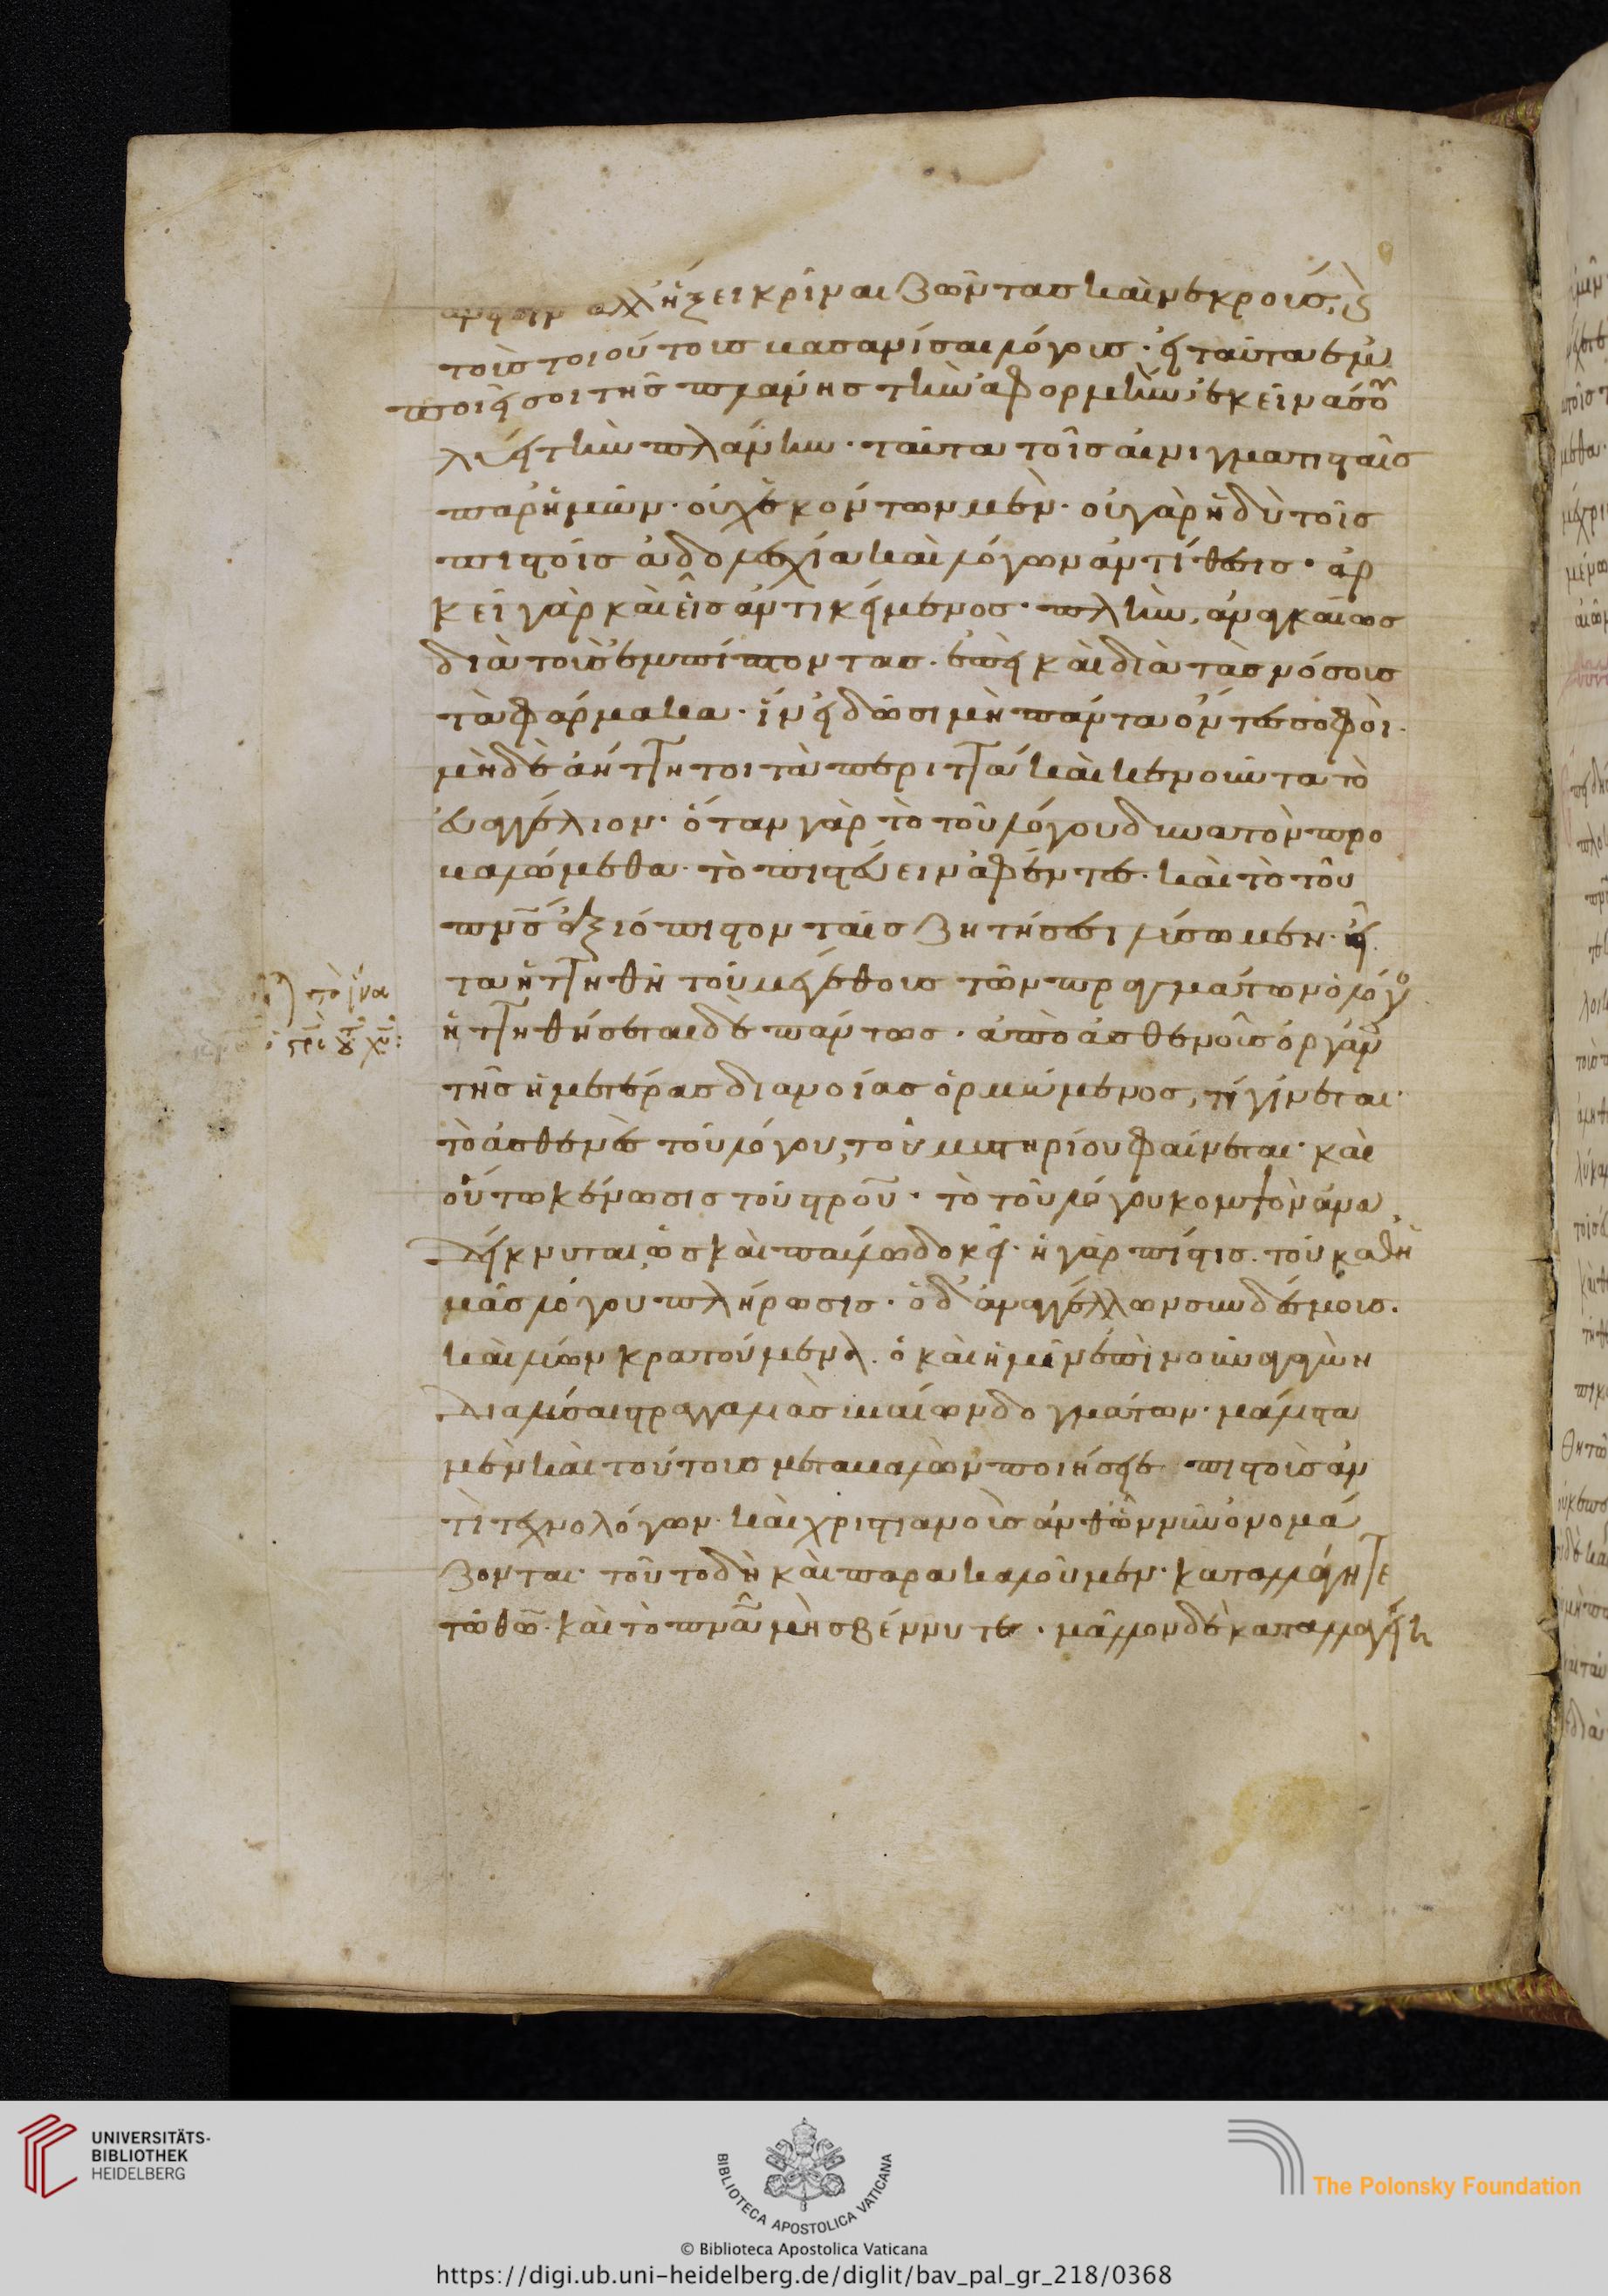 ἄνεισιν ἀλλ' ἥξει κρῖναι ζῶντας καὶ νεκρούς, καὶ
τοὺς τοιούτους βασανίσαι λόγους· εἰ ταῦτα ἐμ
ποιεῖ σοι τῆς πλάνης τὴν ἀφορμὴν ἐκεῖνά σου
λύει τὴν πλάνην· ταῦτα τοῖς αἰνιγματισταῖς
παρ' ἡμῶν· οὐχ ἑκόντων μέν· οὐ γὰρ ἡδὺ τοῖς
πιστοῖς ἀδολεσχία καὶ λόγων ἀντίθεσις· ἀρ
κεῖ γὰρ καὶ εἷς ἀντικείμενος· πλὴν, ἀναγκαίως
διὰ τοὺς ἐμπίπτοντας· ἐπεὶ καὶ διὰ τὰς νόσους
τὰ φάρμακα· ἵν' εἰδῶσι μὴ πάντα ὄντες σοφοί·
μηδὲ ἀήττητοι τὰ περιττὰ καὶ κενοῦντα τὸ
εὐαγγέλιον· ὅταν γὰρ τὸ τοῦ λόγου δυνατὸν προ
βαλώμεθα· τὸ πιστεύειν ἀφέντες· καὶ τὸ τοῦ
πνς ἀξιόπιστον ταῖς ζητήσεσι λύσωμεν· εἶ
τα ἡττηθῇ τοῦ μεγέθους τῶν πραγμάτων ὁ λόγο
ἡττηθήσεται δὲ πάντως· ἀπὸ ἀσθενοῦς ὀργάν
τῆς ἡμετέρας διανοίας ὁρμώμενος, τί γίνεται·
τὸ ἀσθενὲς τοῦ λόγου, τοῦ μυστηρίου φαίνεται· καὶ
οὕτω κένωσις τοῦ στρου· τὸ τοῦ λόγου κομψὸν ἀνα
δείκνυται, ὡς καὶ παύλω δοκεῖ· ἡ γὰρ πίστις τοῦ καθ' ἡ
μᾶς λόγου πλήρωσις· ὁ δ' ἀναγγέλλων συνδέσμους·
καὶ λύων κρατούμενα· ὁ καὶ ἡμῖν ἐπὶ νοῦν ἀγαγὼν
διαλῦσαι στραγγαλιὰς βιαίων δογμάτων· μάλιστα
μὲν καὶ τούτους μεταβαλὼν ποιήσειε πιστοὺς ἀν
τὶ τεχνολόγων· καὶ χριστιανοὺς ἀνθ' ὧν νῦν ὀνομά
ζονται· τοῦτο δὴ καὶ παρακαλοῦμεν· καταλλάγητε
τῶ θω· καὶ τὸ πνα μὴ σβέννυτε· μᾶλλον δὲ καταλλαγείη
UNIVERSITÄTS-
BIBLIOTHEK
HEIDELBERG
BIBLIOTECA APOSTOLICA VATICANA
The Polonsky Foundation
© Biblioteca Apostolica Vaticana
https://digi.ub.uni-heidelberg.de/diglit/bav_pal_gr_218/0368